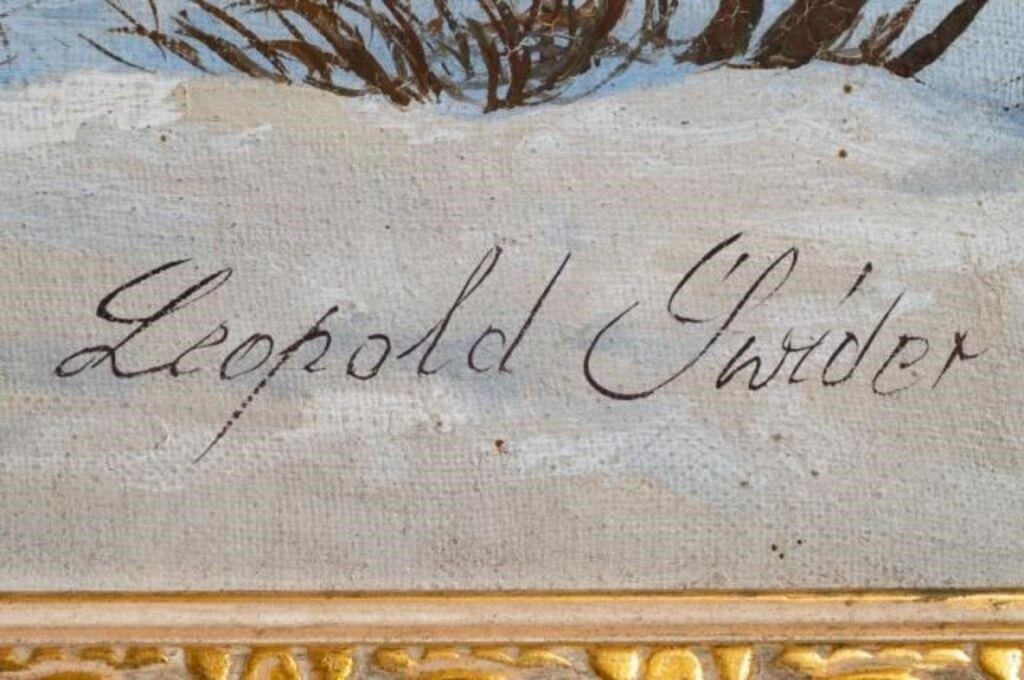 Leopold Świder